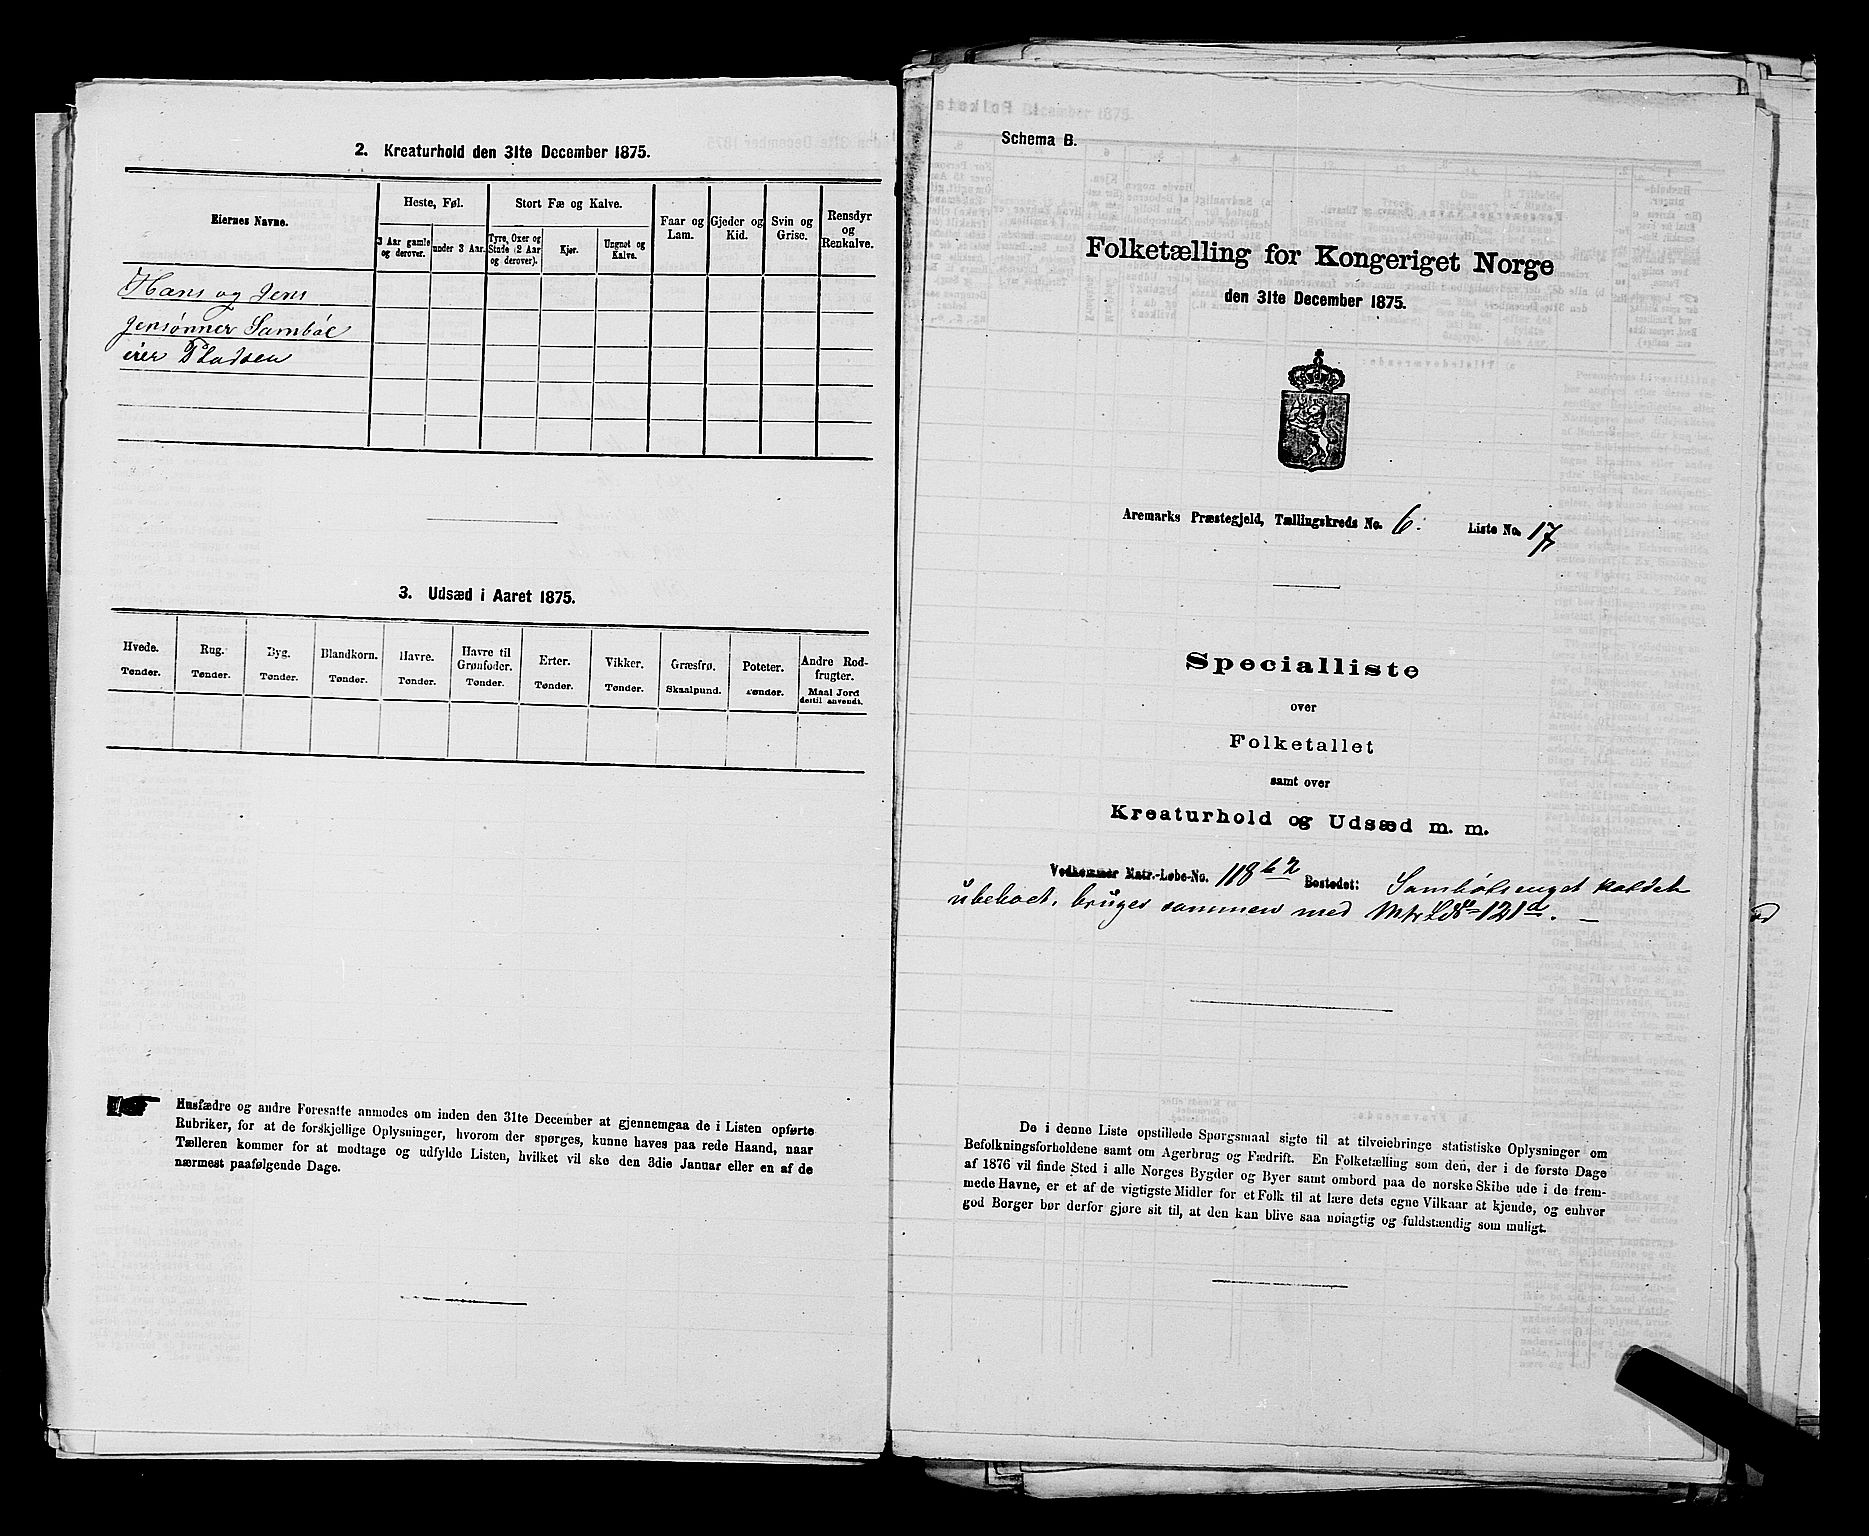 2. Kreaturhold den 31te December 1875.
Eiernes Navne.
Heste, Føl.
Stort Fæ og Kalve.
Faar og Lam.
Gjeder og Kid.
Svin og Grise.
Rensdyr og Renkalve.
3 Aar gamle og derover.
under 3 Aar.
Tyre, Oxer og Stude (2 Aar og derover).
Kjør.
Ungnøt og Kalve.
Hans og Jens
Jensønner Sambøl
eier Pladsen
3. Udsæd i Aaret 1875.
Hvede. Tønder.
Rug. Tønder.
Byg. Tønder.
Blandkorn. Tønder.
Havre. Tønder.
Havre til Grønfoder. Tønder.
Erter. Tønder.
Vikker. Tønder.
Græsfrø. Skaalpund.
Poteter. Tønder.
Andre Rodfrugter. Maal Jord dertil anvendt.
Husfædre og andre Foresatte anmodes om inden den 31te December at gjennemgaa de i Listen opførte
Rubriker, for at de forskjellige Oplysninger, hvorom der spørges, kunne haves paa rede Haand, naar
Tælleren kommer for at modtage og udfylde Listen, hvilket vil ske den 3die Januar eller en af de
nærmest paafølgende Dage.
Schema B.
Folketælling for Kongeriget Norge
den 31te December 1875.
Aremarks Præstegjeld, Tællingskreds No. 6. Liste No. 17
Specialliste
over
Folketallet
samt over
Kreaturhold og Udsæd m. m.
Vedkommer Matr.-Løbe-No. 118 b 2 Bostedet: Sambølsenget kaldet
ubeboet, bruges sammen med Mtr LNo 121a. —
De i denne Liste opstillede Spørgsmaal sigte til at tilveiebringe statistiske Oplysninger om
Befolkningsforholdene samt om Agerbrug og Fædrift. En Folketælling som den, der i de første Dage
af 1876 vil finde Sted i alle Norges Bygder og Byer samt ombord paa de norske Skibe ude i de frem-
mede Havne, er et af de vigtigste Midler for et Folk til at lære dets egne Vilkaar at kjende, og enhver
god Borger bør derfor gjøre sit til, at den kan blive saa nøiagtig og fuldstændig som muligt.